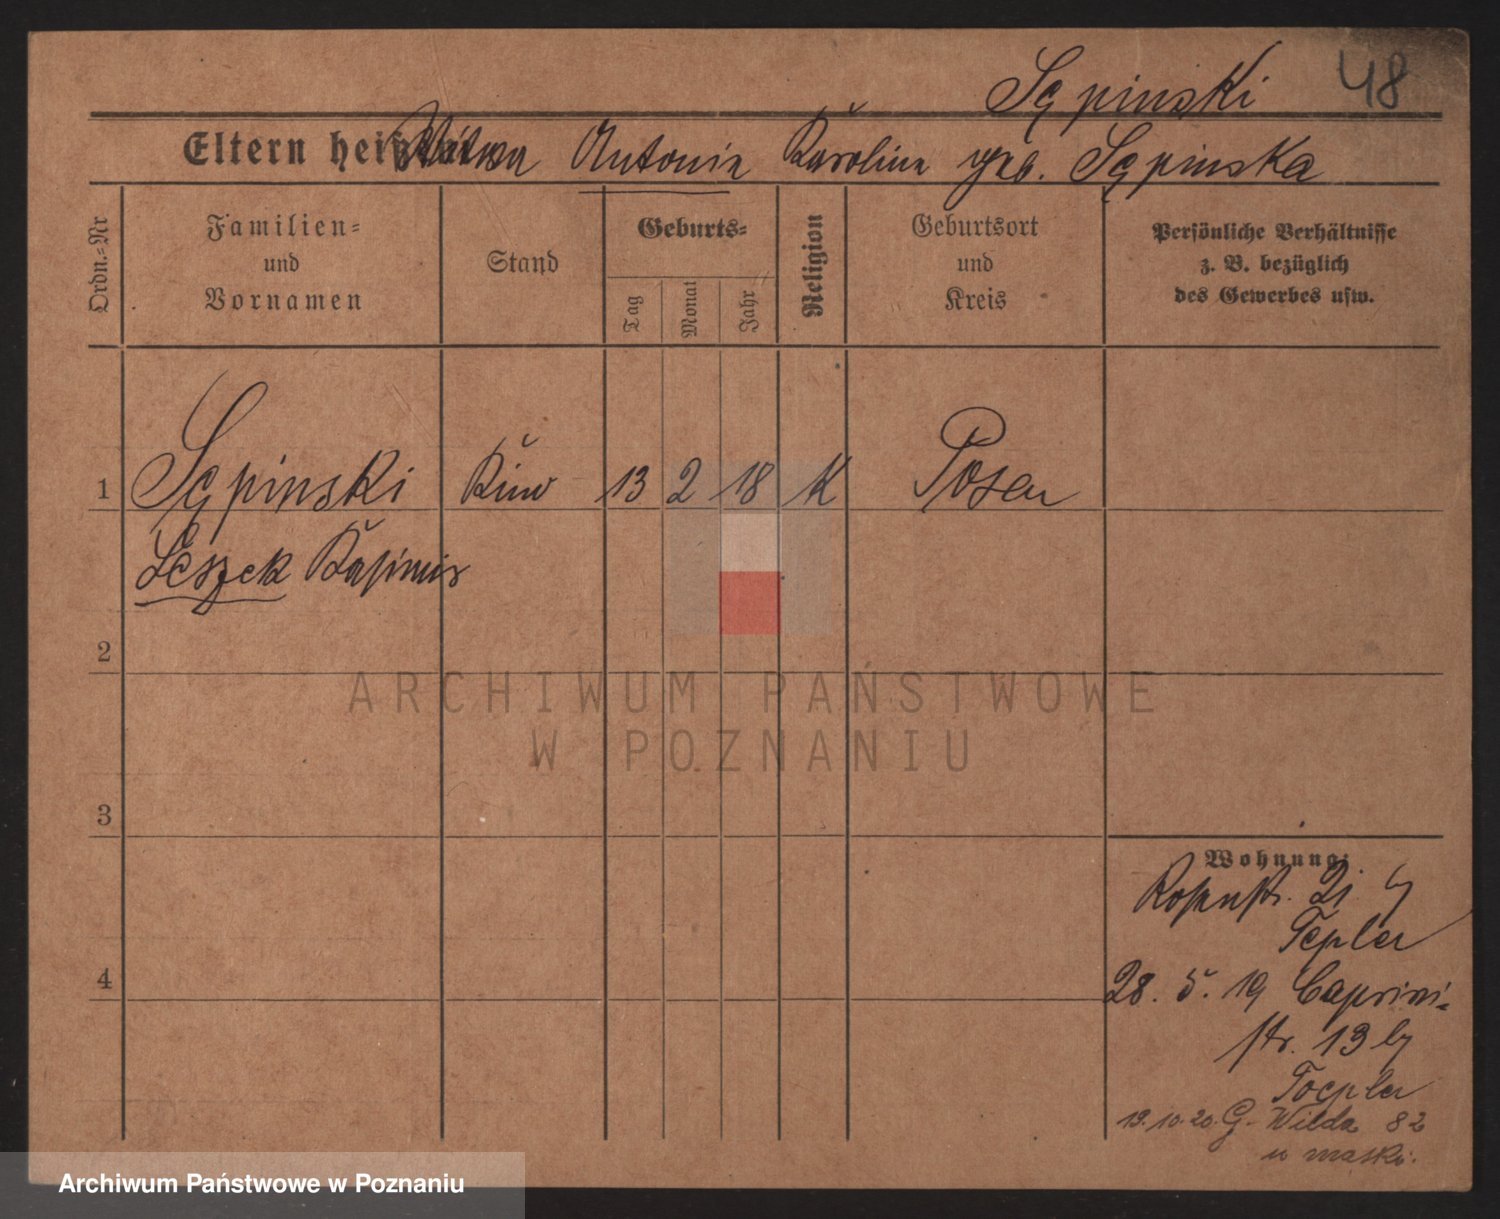 Sępinski 48
Eltern heißen: Antonie Karoline geb. Sępinska
Ordn.-Nr
Familien- und Vornamen
Stand
Geburts-
Tag
Monat
Jahr
Religion
Geburtsort und Kreis
Persönliche Verhältnisse
z. B. bezüglich
des Gewerbes usw.
1 Sępinski Kind 13 2 18 K Posen
Leszek Kasimir
2
ARCHIWUM PAŃSTWOWE
W POZNANIU
3
Wohnung:
Rosenstr. 2
Tepler
4
28. 5. 19 Caprivi-
str. 13 b/
Toepler
19.10.20. G. Wilda 82
u matki.
Archiwum Państwowe w Poznaniu